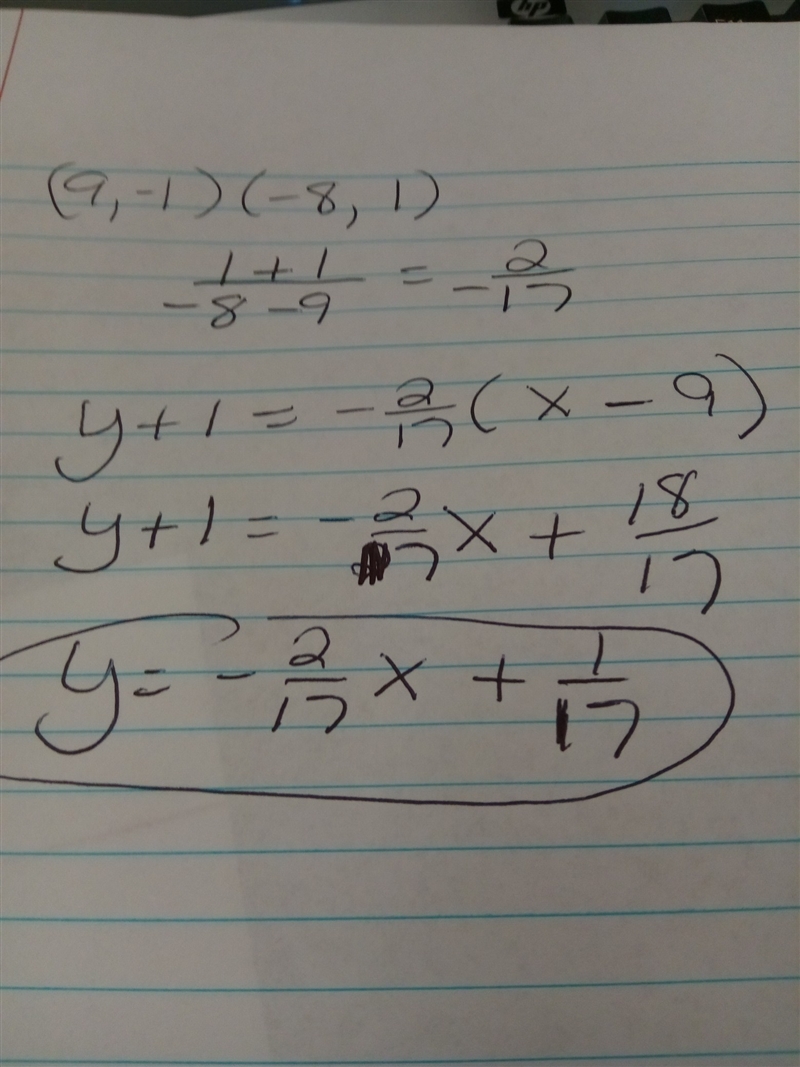 hp
(9, -1) (-8, 1)
1 + 1 / -8 - 9 = - 2/17
y + 1 = - 2/17 (x - 9)
y + 1 = - 2/17 x + 18/17
y = - 2/17 x + 1/17